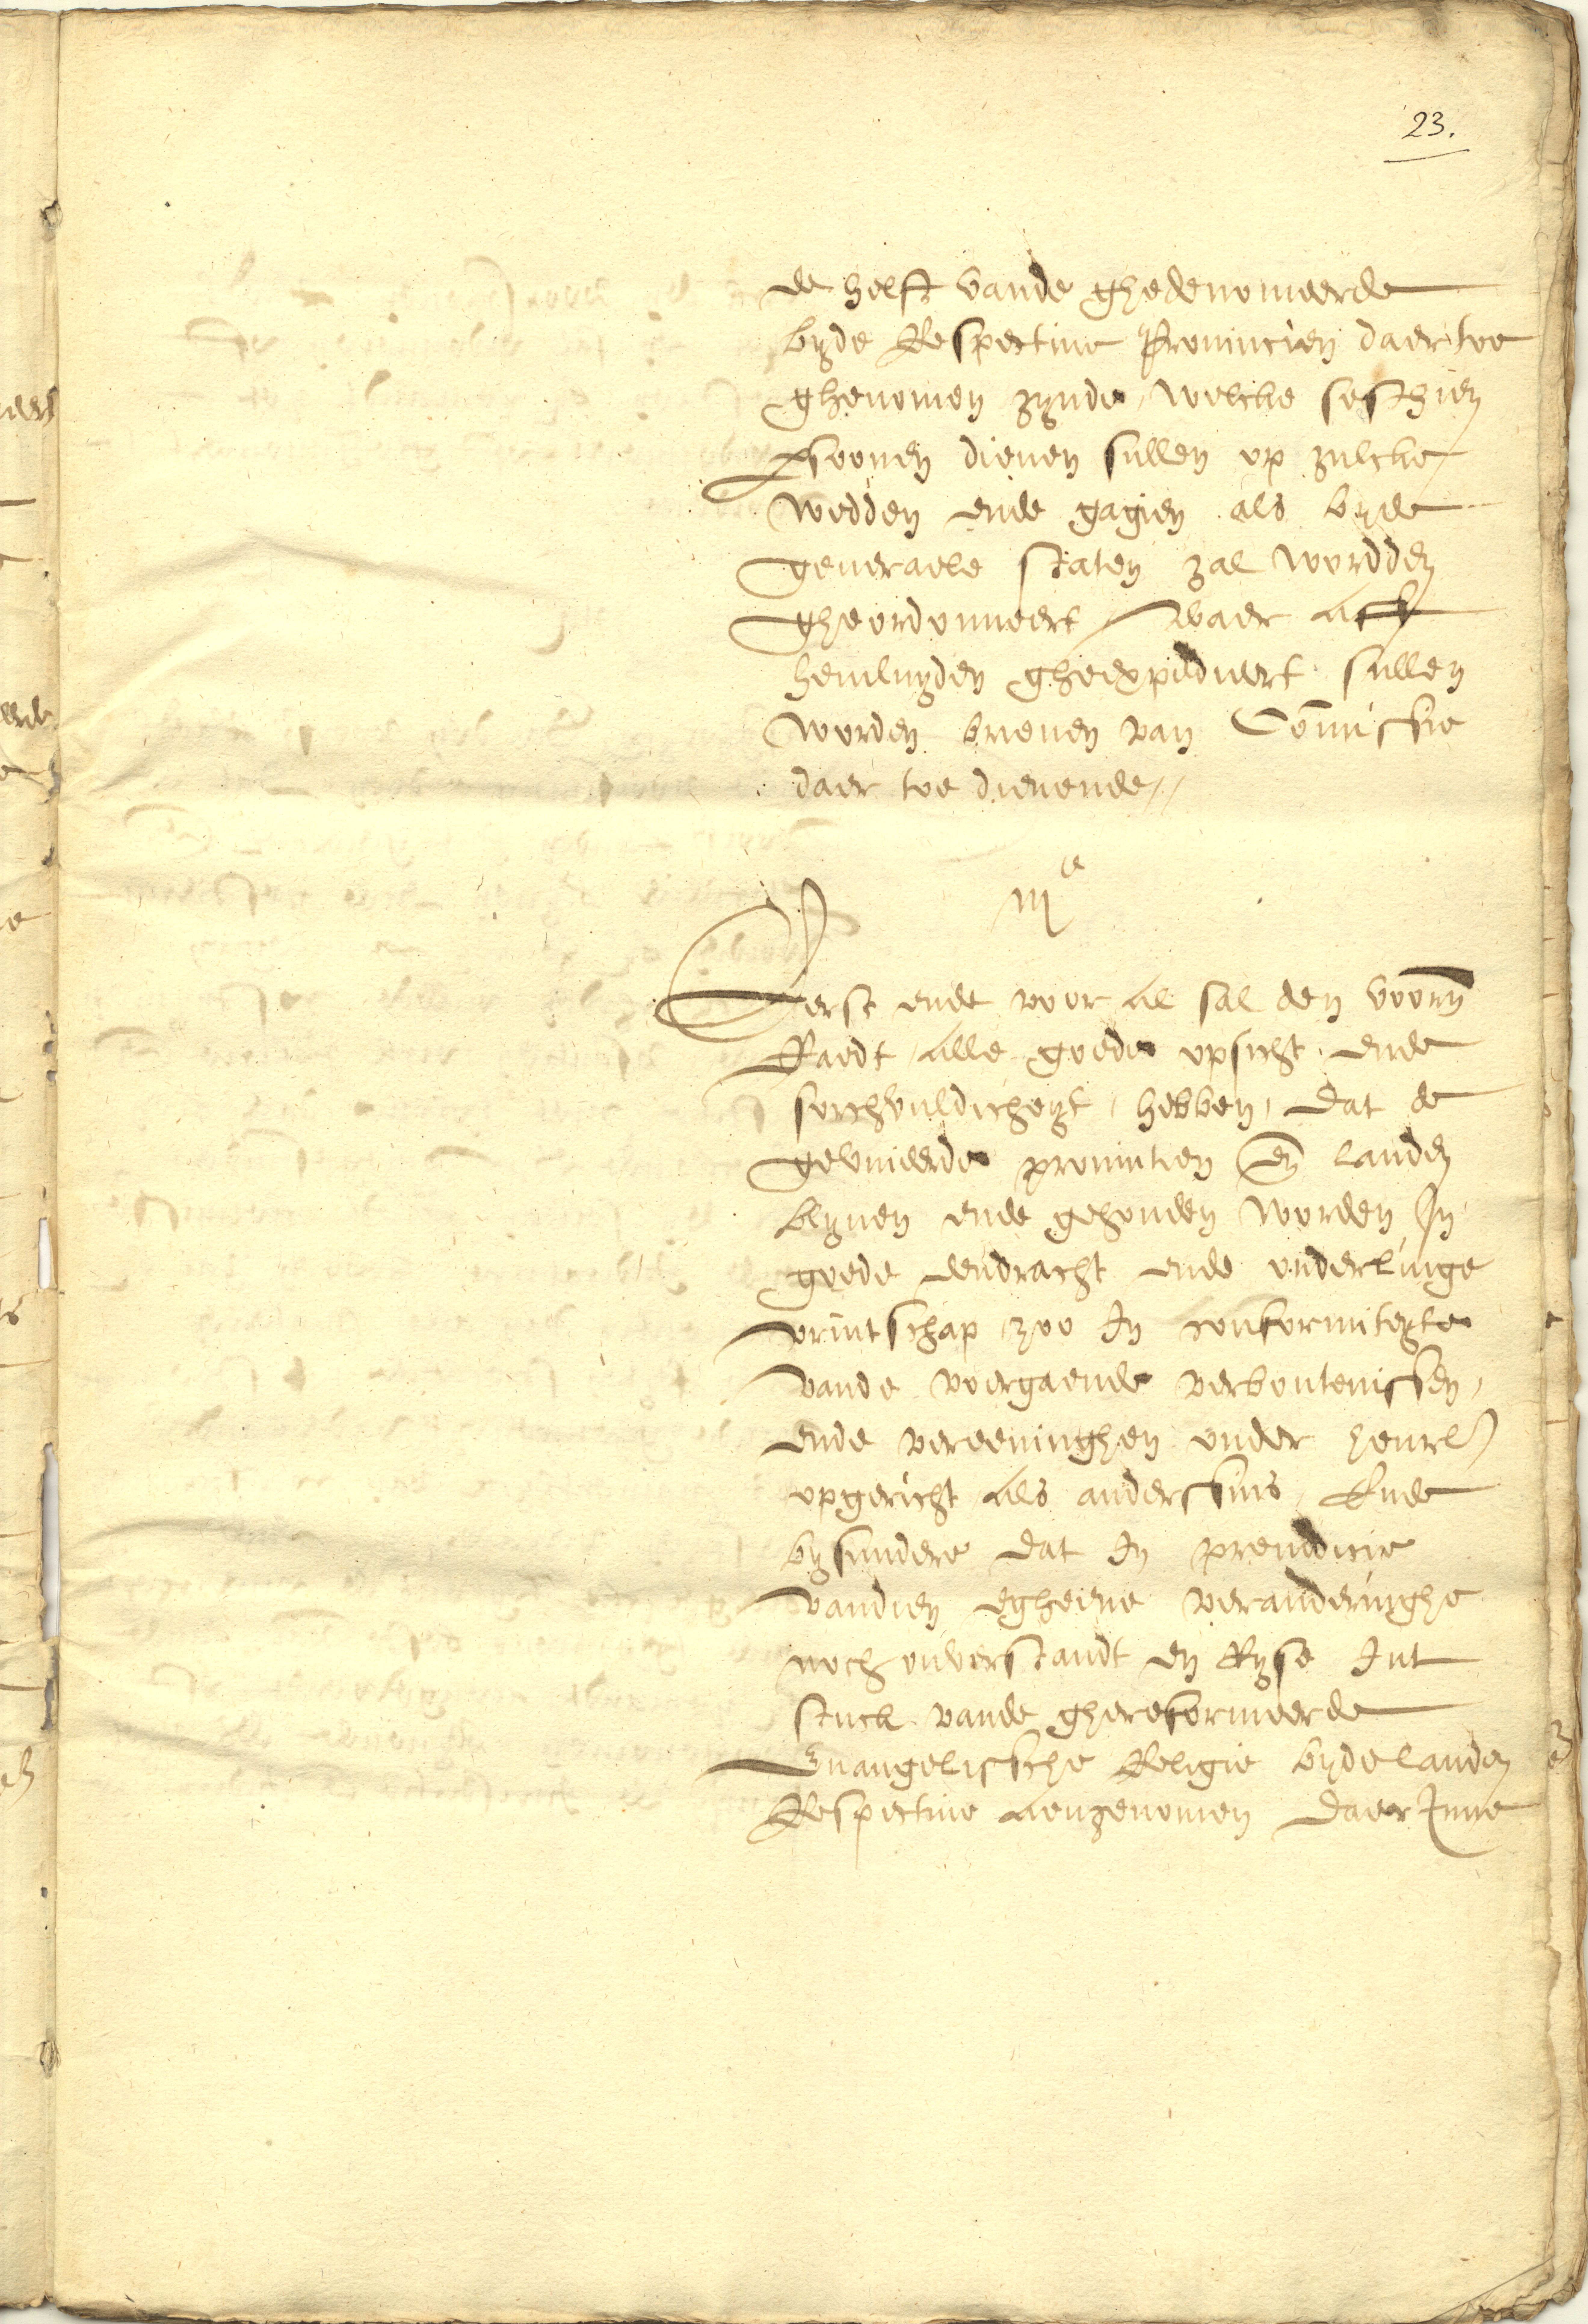 23.
de helft vande ghedenomeerde
byde Respective Provincien daer toe
ghenomen zynde, welcke sesthien
psoonen dienen sullen op zulcke
wedden ende gagien als byde
generaele staten zal wordden
gheordonneert / Waer aff
hemluyden gheexpediceert sullen
worden brieven van Commissie
daer toe dienende //
iije
Eerst ende voor al sal den voorn
Raedt alle goede opsicht ende
sorchvuldicheyt hebben, dat de
geunieerde provintien en landen
blyven ende gehouden worden In
goede eendracht ende onderlinge
vrintschap zoo In conformiteyte
vande voergaende verbontenissen,
ende vereeninghen onder henrl
opgericht als anderssins, Ende
bysundere dat In preiudicie
vandien egheene veranderinghe
noch onverstandt en Ryse Int
stuck vande ghereformeerde
Evangelissche Religie byde landen
Respective aengenomen daer Inne